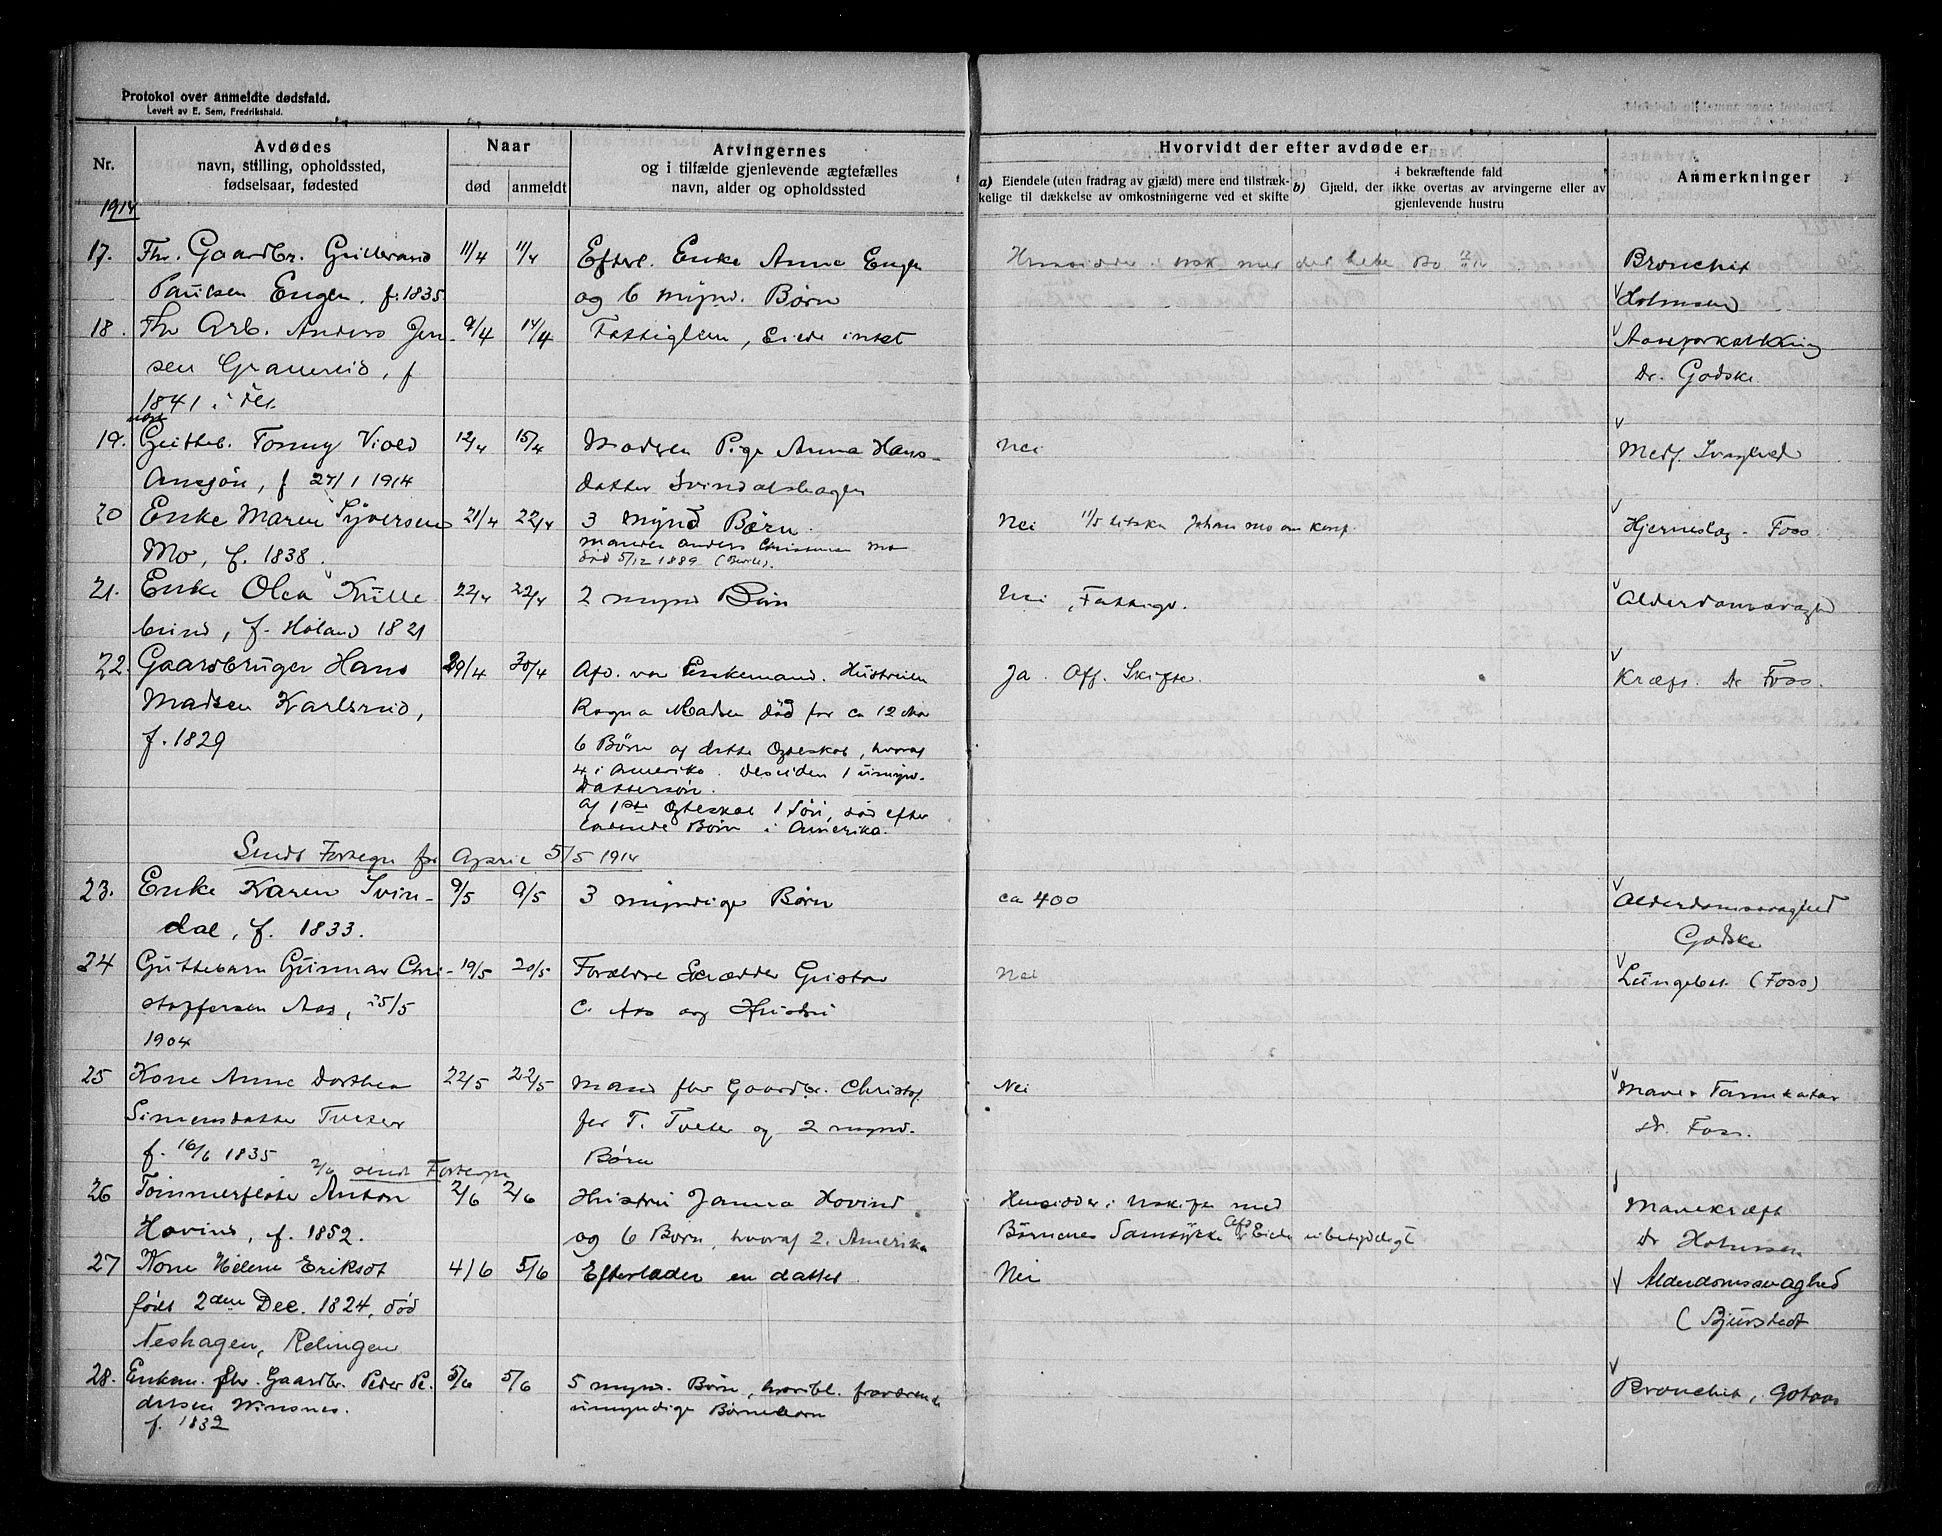 Protokol over anmeldte dødsfald.
Levert av E. Sem, Fredrikshald.
Nr.
Avdødes
navn, stilling, opholdssted,
fødselsaar, fødested
Naar
død
anmeldt
Arvingernes
og i tilfælde gjenlevende ægtefælles
navn, alder og opholdssted
Hvorvidt der efter avdøde er
a) Eiendele (uten fradrag av gjæld) mere end tilstræk-
kelige til dækkelse av omkostningerne ved et skifte
b) Gjæld, der i bekræftende fald
ikke overtas av arvingerne eller av
gjenlevende hustru
Anmerkninger
1914
17. Fhv. Gaardbr. Gulbrand 11/4 11/4 Efterl. Enke Anne Engen Bronchit
Paulsen Engen, f. 1835 og 6 mynd. Børn Holmsen
18. Fhv Arb. Anders Jen- 9/4 14/4 Fattiglem, Eiede intet Aareforkalkning
sen f Dr. Godske
1841
19. Gutteb. Tonny 12/4 15/4 Moderen Pige Anna Hans- Nei Medf. Svaghed
f 27/1 1914 datter Svindalshagen
20 Enke Maren Syversen 21/4 22/4 3 mynd Børn. Nei 11/5 Johan Mo om Hjerneslag - Foss
Mo, f. 1838. Manden Anders Christensen Mo
død 5/12 1889
21. Enke Olea Kulle 22/4 22/4 2 mynd Børn Nei, Fattigv. Alderdomssvaghed
brind, f. Høland 1821
22. Gaardbruger Hans 29/4 30/4 Afd. var Enkemand. Hustruen Ja. Off. Skifte. Kræft. Dr Foss.
Madsen Karlsrud, Ragna Madsen død for ca 12 Aar
f. 1829 6 Børn af dette Egteskab, hvoraf
4 i Amerika. Desuden 1 umynd.
Dattersøn.
Af 1ste Egteskab 1 Søn, død efter
ladende Børn i Amerika.
Sendt Fortegn for April 5/5 1914
23. Enke Karen Svin- 9/5 9/5 3 myndige Børn ca 400 Alderdomssvaghed
dal, f. 1833. Godske
24 Guttebarn Gunnar Chri- 19/5 20/5 Forældre Skrædder Gustav Nei Lungebet. (Foss)
stoffersen Aas, 25/5 C. Aas og Hustru
1904
25 Kone Anne Dorthea 22/5 22/5 Mand fhv Gaardbr. Christof Nei Mave & Tarmkatar
Simensdatter Tveter fer T. Tveter og 2 mynd. Dr. Foss.
f. 16/6 1835 Børn
2/6 sendt Fortegn
26 Tømmerfløter Anton 2/6 2/6 Hustru Janna Hovind Hensidder i Uskifte med Mavekræft
Hovind, f. 1852. og 6 Børn, hvoraf 2 i Amerika Børnenes Samtykke Eide ubetydeligt Dr Holmsen
27 Kone Helene Eriksdt 4/6 5/6 Efterlader en datter. Nei Alderdomssvaghed
født 2den Dec. 1824, død (Bjurstedt
Neshagen, Rælingen
28. Enkem. fhv. Gaardbr. Peder Pe- 5/6 5/6 5 mynd. Børn, fraværende Bronchit, Gotaas
dersen Winsnes. umyndige Børnebørn
f. 1832